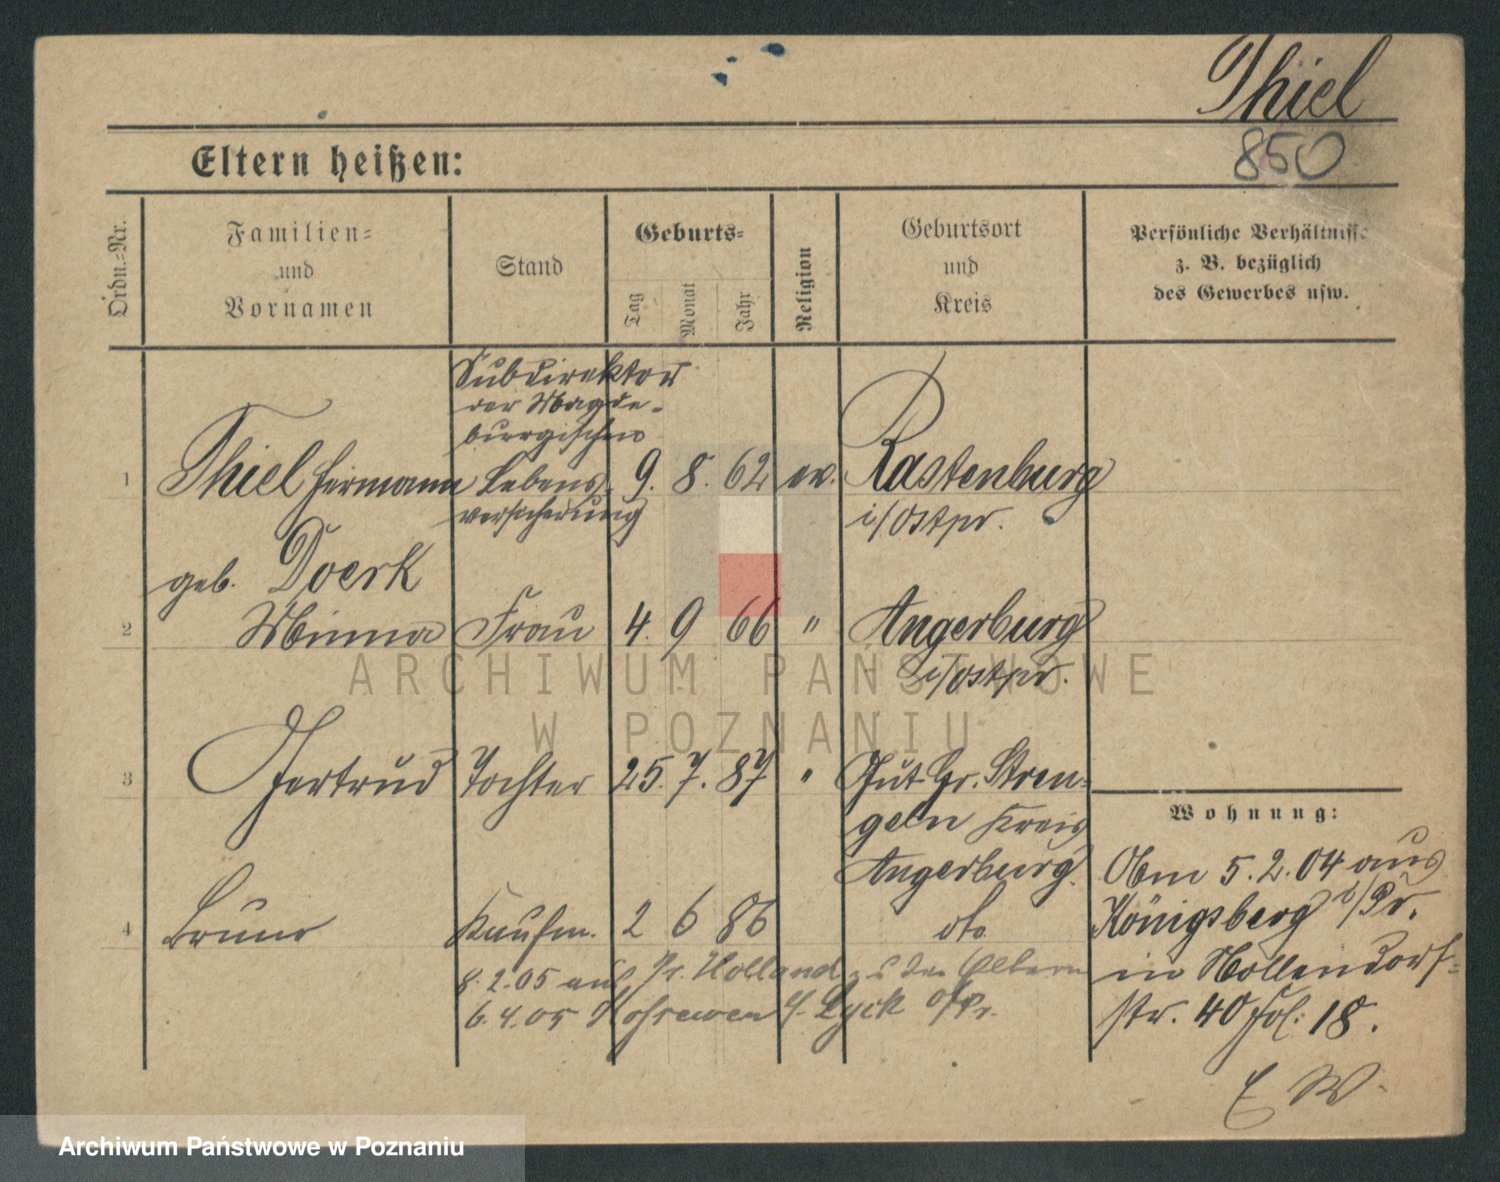 Thiel
850
Eltern heißen:
Ordn.-Nr.
Familien-
und
Vornamen
Stand
Geburts-
Tag
Monat
Jahr
Religion
Geburtsort
und
Kreis
Persönliche Verhältnisse
z. B. bezüglich
des Gewerbes usw.
Subdirektor
der Magde-
burgischen
1 Thiel Hermann Lebens- 9. 8. 62 ev. Rastenburg
versicherung i/Ostpr.
geb. Doerk
2 Minna Frau 4. 9 66 " Angerburg
i/Ostpr.
3 Gertrud Tochter 25. 7. 87 " Gut Gr. Stren-
geln Kreis
Angerburg.
4 Bruno Kaufm. 2 6 86 dto
8.2.05 auf Pr. Holland z u den Eltern
6.4.05 Lyck o/Pr.
Wohnung:
5.2.04 aus
Königsberg i/Pr.
in Nollendorf-
str. 40 18.
E W.
ARCHIWUM PAŃSTWOWE
W POZNANIU
Archiwum Państwowe w Poznaniu